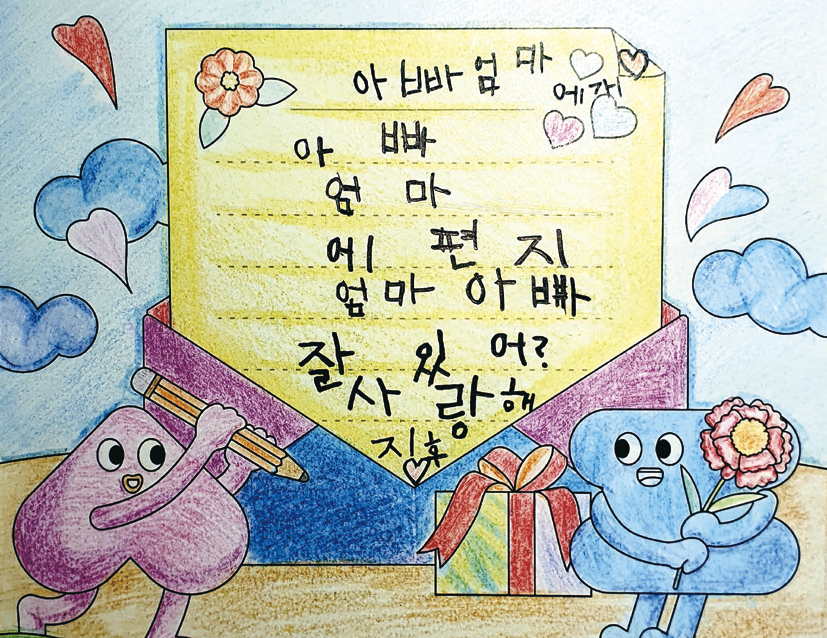 아빠엄마
에게
아 빠
엄 마
에 편 지
엄마 아빠
잘 있어?
사랑해
지후